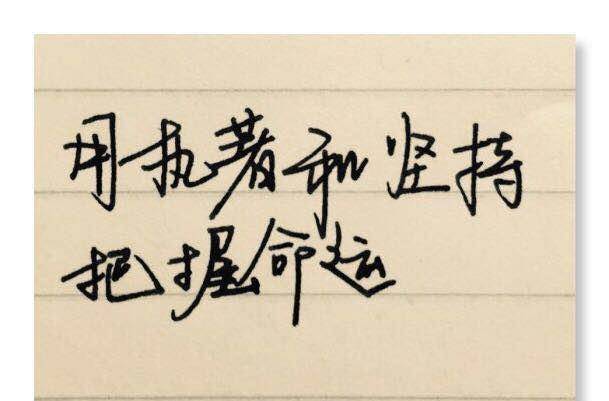 用执著和坚持
把握命运